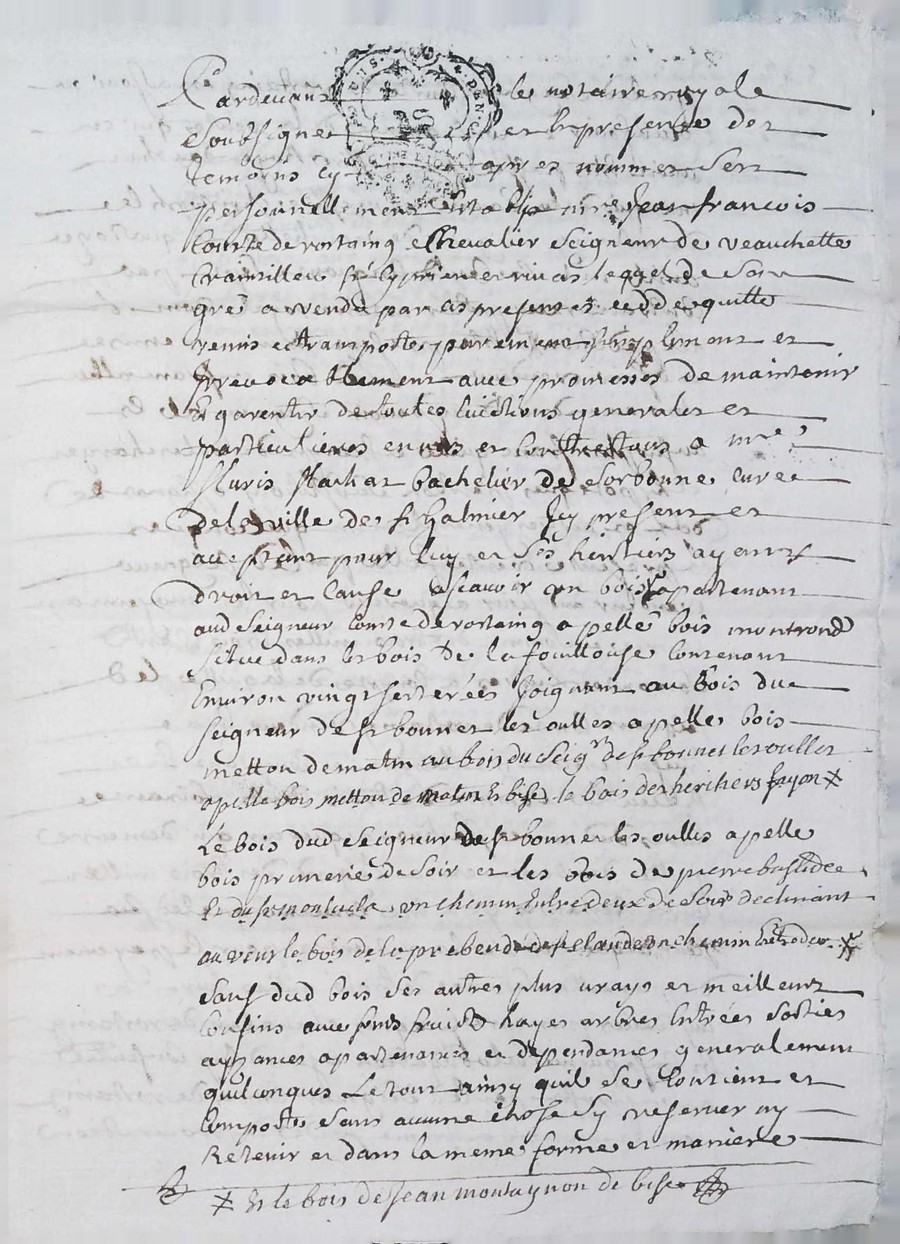 Pardevant le notaire royale
Soubsigne et en presence des
temoins cy apres nommes sest
personnellement establis mre Jean francois
Comte de rostaing Chevalier Seigneur de veauchette
st Cyprien et rivas lequel de son
gré a vendu par ces presentes cedde quitte
remis et transportes purement simplement et
irrevocablement avec promesses de maintenir
Et garentir de toutes Evictions generales et
particulieres envers et contre tous a mre
bachelier de Sorbonne curé
de la ville de st Galmier Icy present et
acceptant pour luy et Ses heritiers ayants
droit et Cause ascavoir un bois apartenant
aud Seigneur Comte de rostaing apellé bois montrond
Situé dans les bois de la fouillouse Contenant
Environ vingt sesterées Joignant au bois du
Seigneur de st bonnet les oulles apelle bois
metton de matin au bois du Seigr de st bonnet les oulles
apelle bois metton de matin Et bise le bois des heritiers fayon X
Le bois dud Seigneur de st bonnet les oulles apelle
bois prunerie de Soir et les bois de pierre bastide
Et du un chemin Entre deux de Soir declinant
au vent le bois de la prebende de un chemin Entre deux X
Sauf dud bois Ses autres plus vrays et meilleurs
Confins avec fonds fruicts hayes arbres Entrées Sorties
aysances apartenances et dependances generalement
quelconques Le tout ainsy quil Se Contient et
Comporte Sans aucune chose Sy reserver ny
Retenir et dans la meme forme et maniere
X Et le bois de Jean montagnon de bise